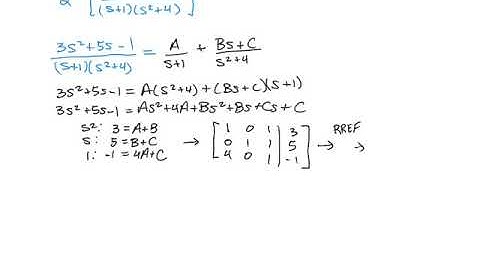 (s+1)(s²+4)
3s²+5s-1 / (s+1)(s²+4) = A / s+1 + Bs+C / s²+4
3s²+5s-1 = A(s²+4) + (Bs+C)(s+1)
3s²+5s-1 = As²+4A+Bs²+Bs+Cs+C
s²: 3=A+B
s: 5=B+C
1: -1=4A+C
→ [ 1 0 1 | 3
0 1 1 | 5
4 0 1 | -1 ] → RREF →